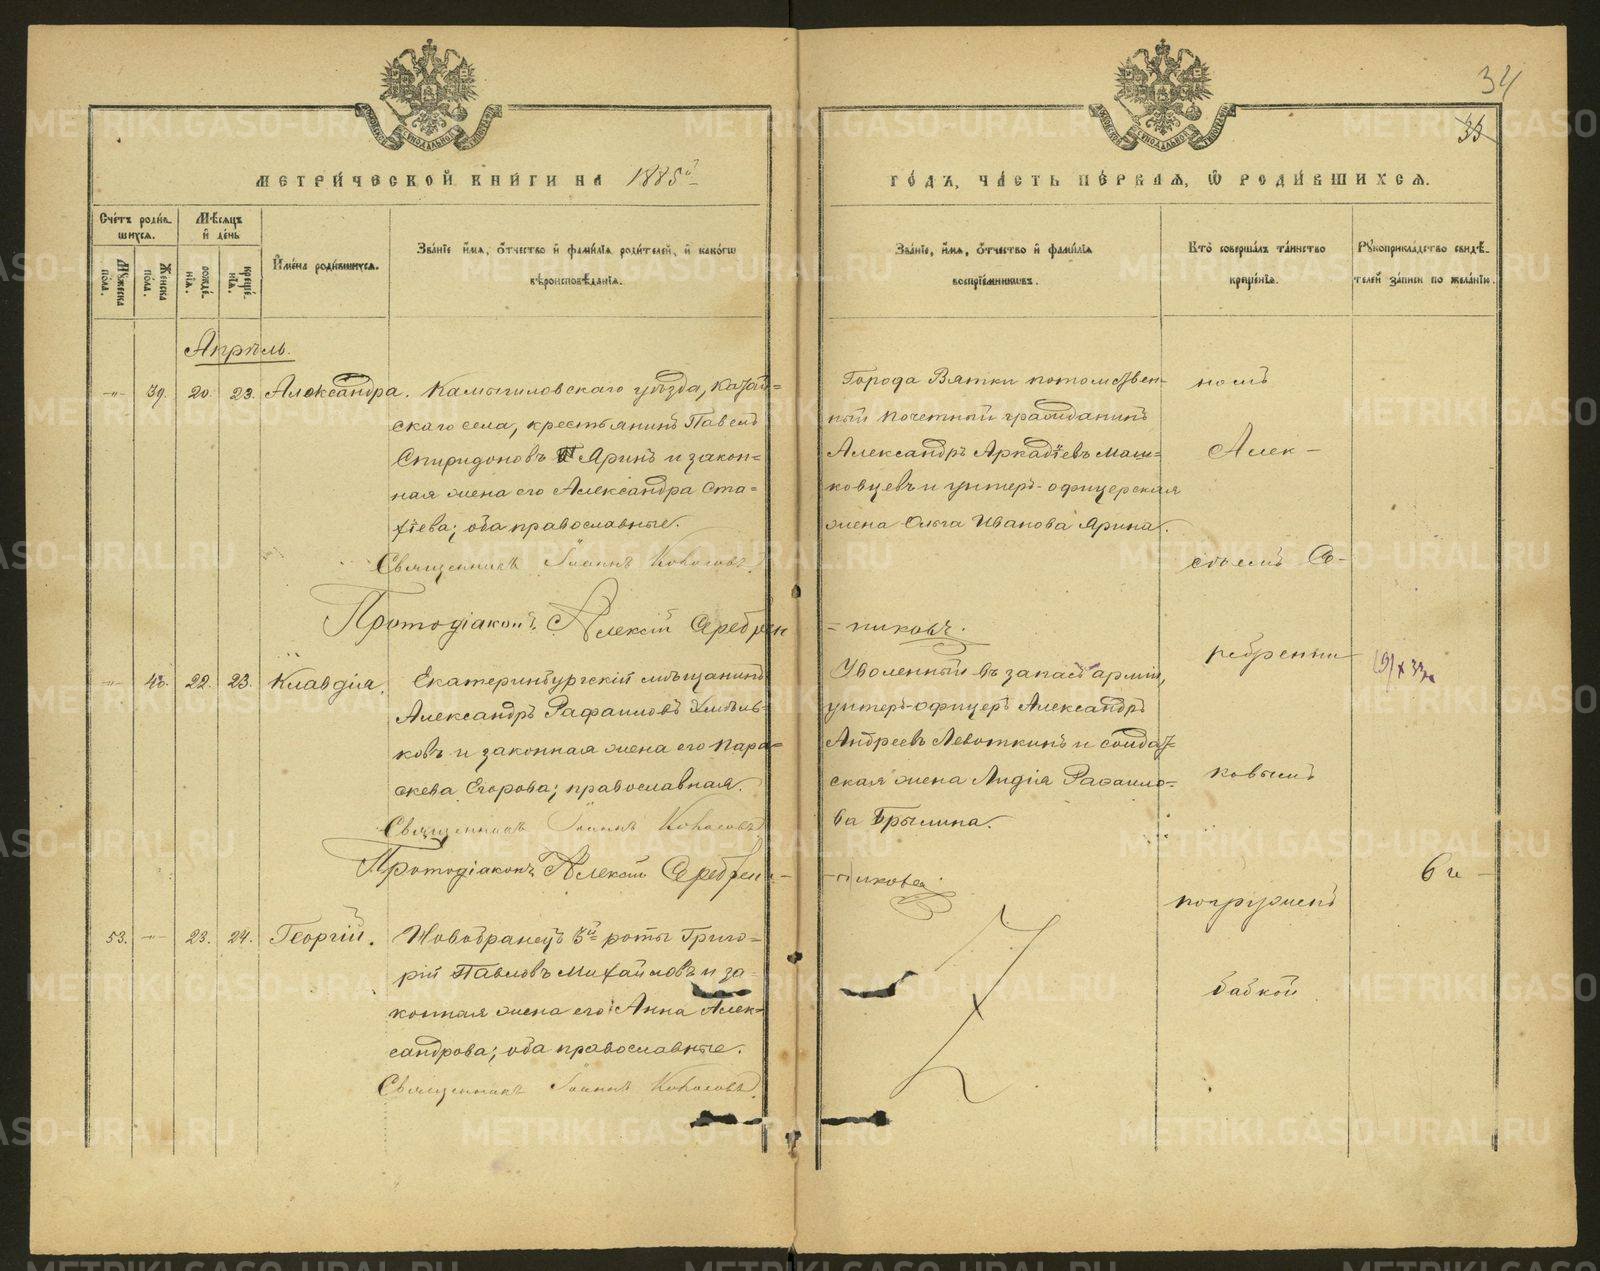 34
35
МЕТРИ́ЧЕСКОЙ КНИ́ГИ НА 1885й
ГО́ДЪ, ЧА́СТЬ ПЕ́РВАЯ, Ѡ РОДИ́ВШИХСЯ.
Сче́тъ роди́вшихся.
Мѣ́сяцъ и де́нь
Му́жеска по́ла.
Же́нска по́ла.
рожде́нїя.
креще́нїя.
И́мена роди́вшихся.
Зва́нїе и́мя, о́тчество и фами́лїя роди́телей, и како́гѡ вѣроисповѣ́данїя.
Зва́нїе, и́мя, о́тчество и фами́лїя воспрїе́мниковъ.
Кто̀ соверша́лъ та́инство креще́нїя.
Рукоприкла́дство свидѣ́телей за́писи по жела́нїю.
Апрѣль.
39. 20. 23. Александра. Камышловскаго уѣзда,
скаго села, крестьянинъ Павелъ
Спиридоновъ Яринъ и закон=
ная жена его Александра Ста=
хѣева; оба православные.
Священникъ Іоаннъ
Протодіаконъ Алексій Серебрен
Города Вятки потомствен-
ный почетный гражданинъ
Александръ Аркадіевъ Маш=
ковцевъ и унтеръ-офицерская
жена Ольга Иванова Ярина.
=никовъ.
22. 23. Клавдія. Екатеринбургскій мѣщанинъ
Александръ Рафаиловъ
ковъ и законная жена его Пара=
скева Егорова; православная.
Священникъ Іоаннъ
Протодіаконъ Алексій Серебрен-
Уволенный въ запасъ арміи,
унтеръ-офицеръ Александръ
Андреевъ Левоткинъ и солдат-
ская жена Лидія Рафаило-
ва Брылина.
-никовъ
53. 23. 24. Георгій. Новобранецъ 5й роты Григо=
рій Павловъ Михайловъ и за-
конная жена его Анна Алек-
сандрова; оба православные.
Священникъ Іоаннъ
номъ
Алек-
сѣемъ Се-
ребренни
ковымъ
погруженъ
бабкой
METRIKI.GASO-URAL.RU